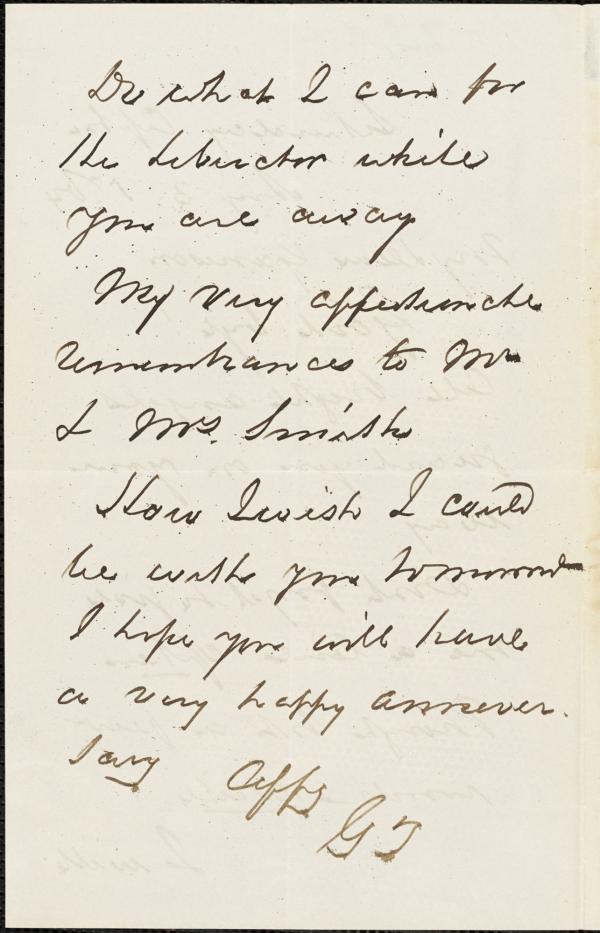 Do what I can for
the Liberator while
you are away
My very affectionate
remembrances to Mr
& Mrs. Smith
How I wish I could
be with you tomorrow
I hope you will have
a very happy anniver.
sary Affy
GT